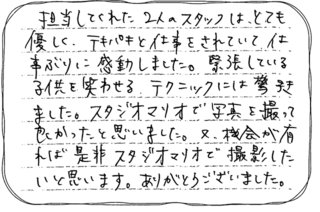 担当してくれた2人のスタッフは、とても
優しく、テキパキと仕事をされていて、仕
事ぶりに感動しました。緊張している
子供を笑わせるテクニックには驚き
ました。スタジオマリオで写真を撮って
良かったと思いました。又、機会が有
れば是非スタジオマリオで撮影した
いと思います。ありがとうございました。